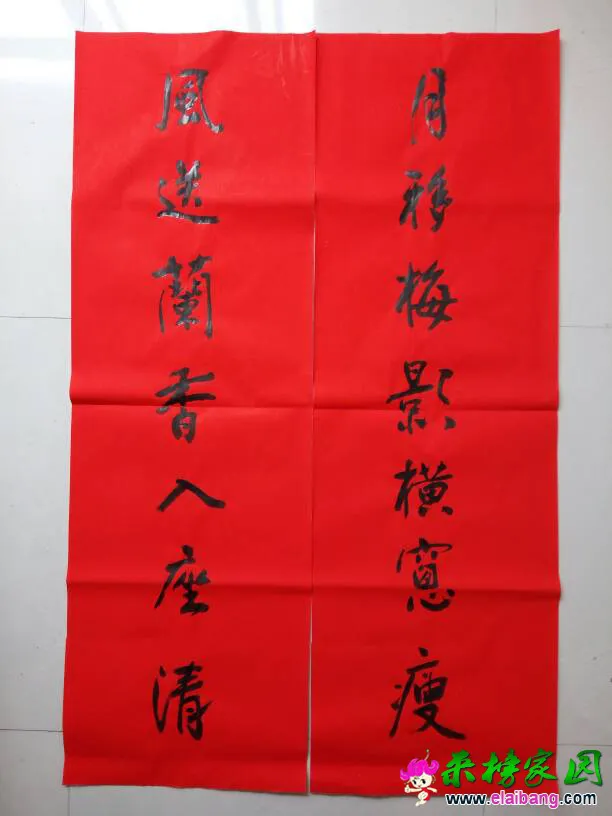 月移梅影橫窻瘦
風送蘭香入座清
采榜家园
www.elaibang.com